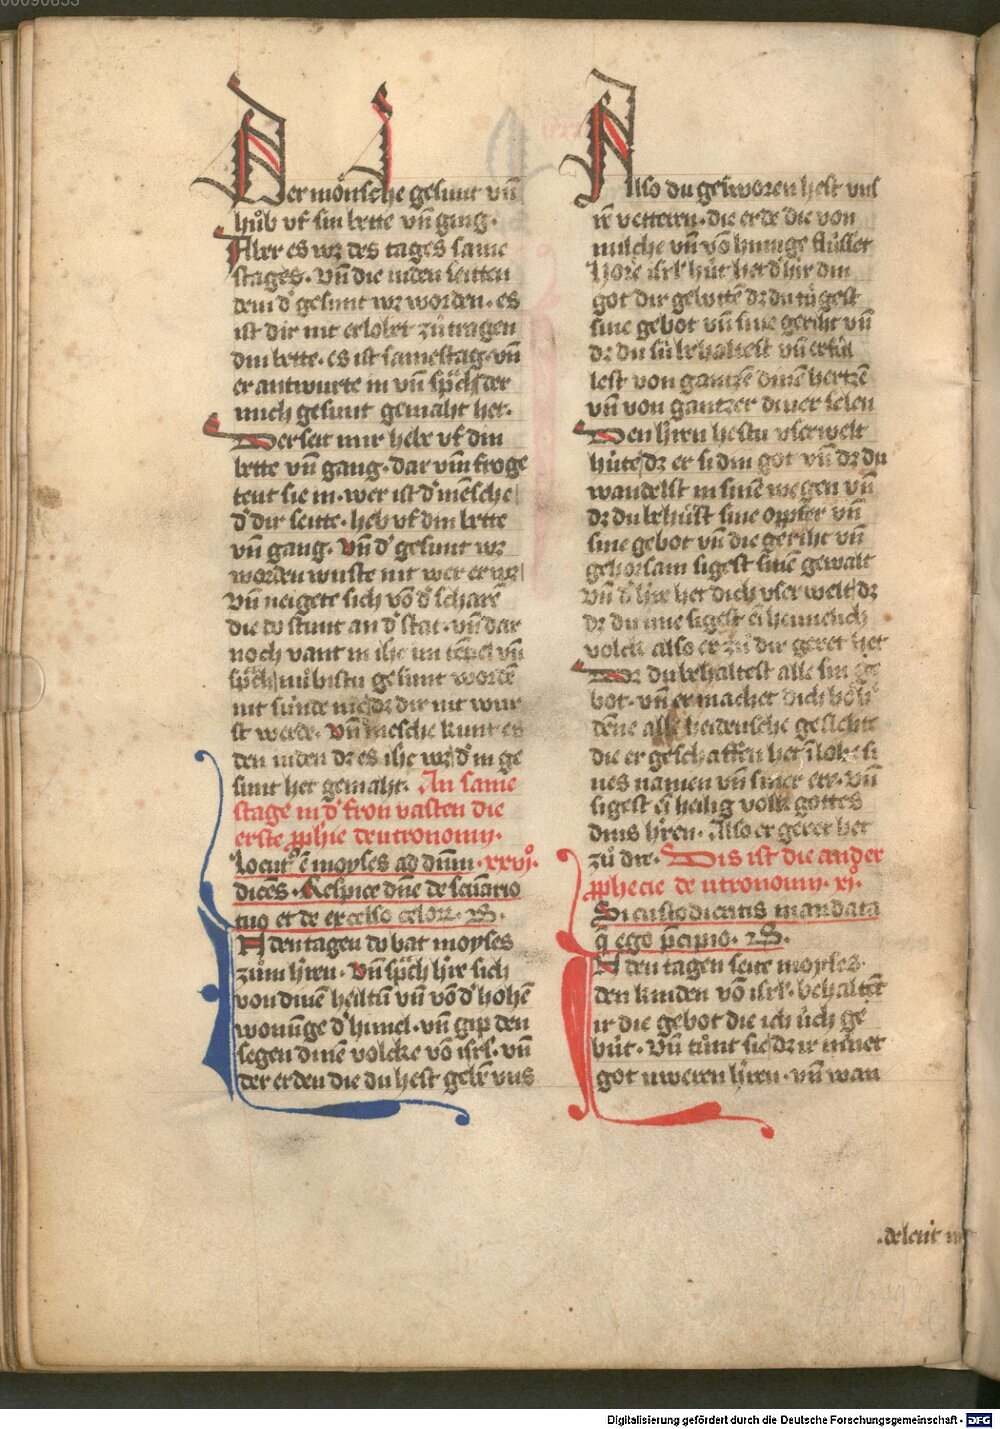 Der mönsche gesunt vn̄
hůb vf sin bette vn̄ ging.
Aber es wz des tages same
stages. Vn̄ die iuden seitten
dem d' gesunt wz worden. es
ist dir nit erlobet zů tragen
din bette. es ist samestag. vn̄
er antwurte in vn̄ sp̄ch der
mich gesunt gemaht het.
Der seit mir hebe vf din
bette vn̄ gang. dar vm̄ froge
tent sie in. wer ist d' mēsche
d' dir seitte. heb vf din bette
vn̄ gang. Vn̄ d' gesunt wz
worden wuste nit wer er wz
Vn̄ neigete sich vō d' scharē
die do stunt an d' stat. vn̄ dar
noch vant in ih̄c im tēpel vn̄
sp̄ch nu bistu gesunt wordē
nit sünde me dz dir nit wur
st werde. Vn̄ d' mēsche kunt es
den iuden dz es ih̄c wz d' in ge
sunt het gemaht. An same
stage in d' fron vasten die
erste p̄phie deutronomij.
Locut' ē moyses ad dn̄m. xxvj.
dicēs. Respice dn̄e de sc̄uario
tuo et de excelso celoꝝ. R.
In den tagen do bat moyses
zům h'ren. Vn̄ sp̄ch h're sich
von dinē heiltū vn̄ vō d' hohē
wonūge d' himel. vn̄ gip den
segen dinē volcke vō isrl. vn̄
der erden die du hest gebē vns
Also du gesworen hest vns
rē vettern. die erde die von
milche vn̄ vō hunige flüsset
Höre isrl' hüt het d' h're din
got dir gebottē dz du tügest
sine gebot vn̄ sine geriht vn̄
dz du sü behaltest vn̄ erfül
lest von gantzē dinē hertzē
vn̄ von gantzer diner selen
Den h'ren hestu vserwelt
hüte dz er si din got vn̄ dz du
wandelst in sinē wegen vn̄
dz du behütst sine oppfer vn̄
sine gebot vn̄ die geriht vn̄
gehorsam sigest sinē gewalt
vn̄ d' h're het dich vserwelt dz
dz du ime sigest ei heimelich
volck also er zů dir geret het
Dz du behaltest alle sin ge
bot. vn̄ er machet dich höh'
dēne alle heidensche geslehte
die er geschaffen het ī lobe si
nes namen vn̄ siner ere. vn̄
sigest ei heilig volk gottes
dins h'ren. Also er geret het
zů dir. Dis ist die ander
p̄phecie deutronomij. xj.
Si custodieritis mandata
q̄ ego p̄cipio. R.
In den tagen seite moyses
den kinden vō isrl'. behaltēt
ir die gebot die ich üch ge
büt. Vn̄ tůnt sie dz ir minēt
got uweren h'ren. vn̄ wan
.deleüt
Digitalisierung gefördert durch die Deutsche Forschungsgemeinschaft - DFG